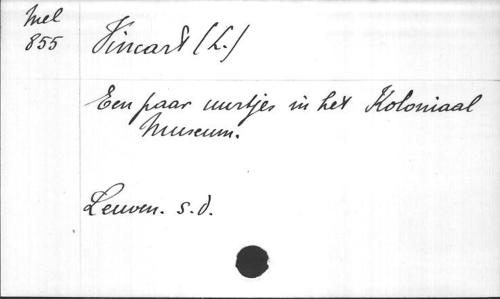 Mel
855
Vincart (L.)
Een paar uurtjes in het Koloniaal
Museum.
Leuven. s.d.